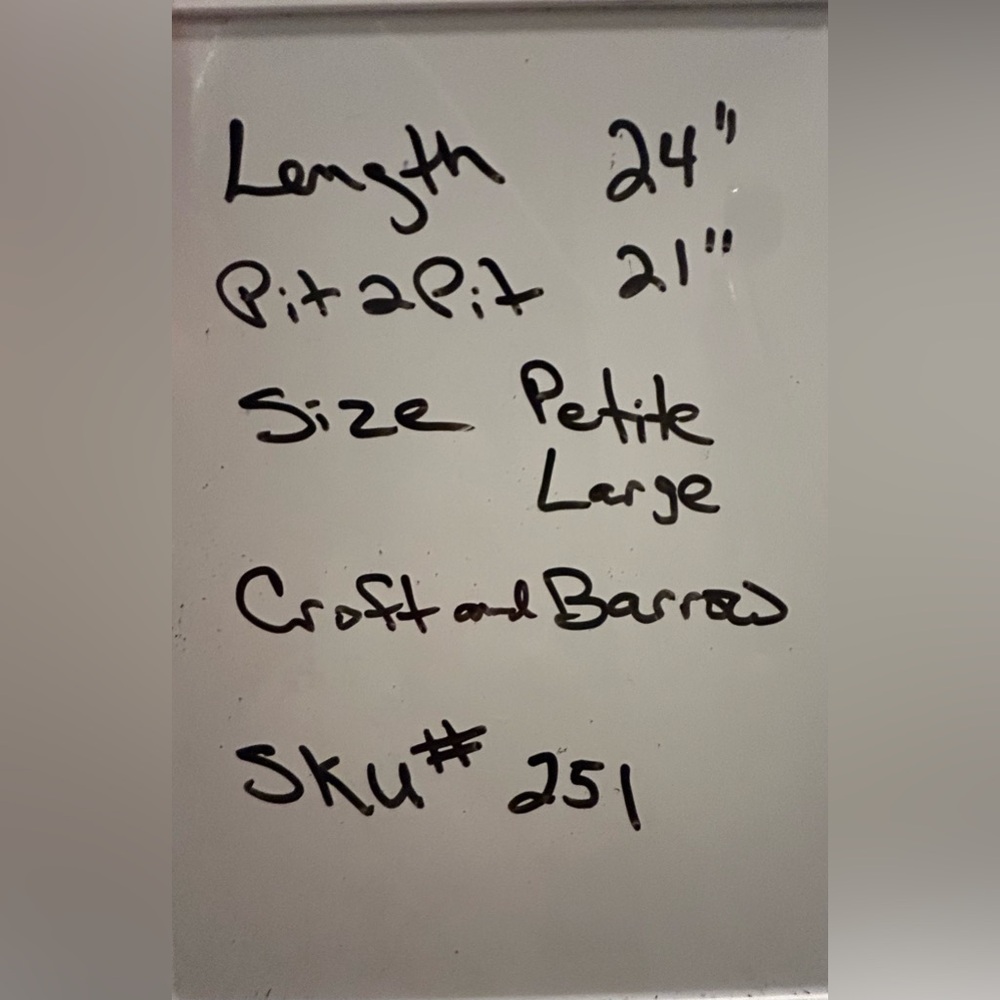 Length 24"
Pit2Pit 21"
Size Petite
Large
Croft and Barrow
Sku# 251